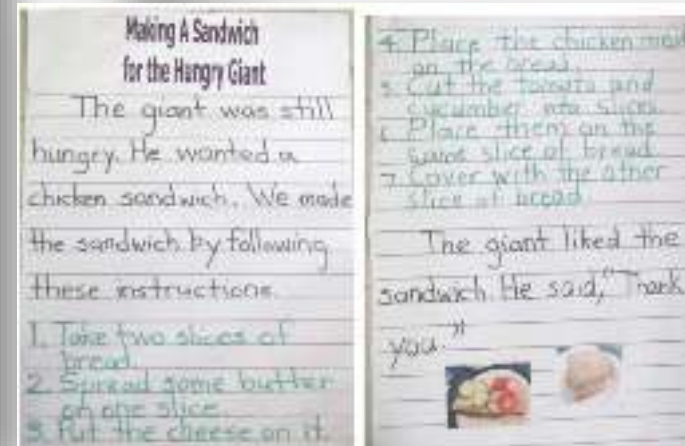 Making A Sandwich
for the Hungry Giant
The giant was still
hungry. He wanted a
chicken sandwich. We made
the sandwich by following
these instructions.
1. Take two slices of
bread.
2. Spread some butter
on one slice.
3. Put the cheese on it.
4. Place the chicken meat
on the bread.
5. Cut the tomato and
cucumber into slices.
6. Place them on the
same slice of bread.
7. Cover with the other
slice of bread.
The giant liked the
sandwich. He said, "Thank
you."